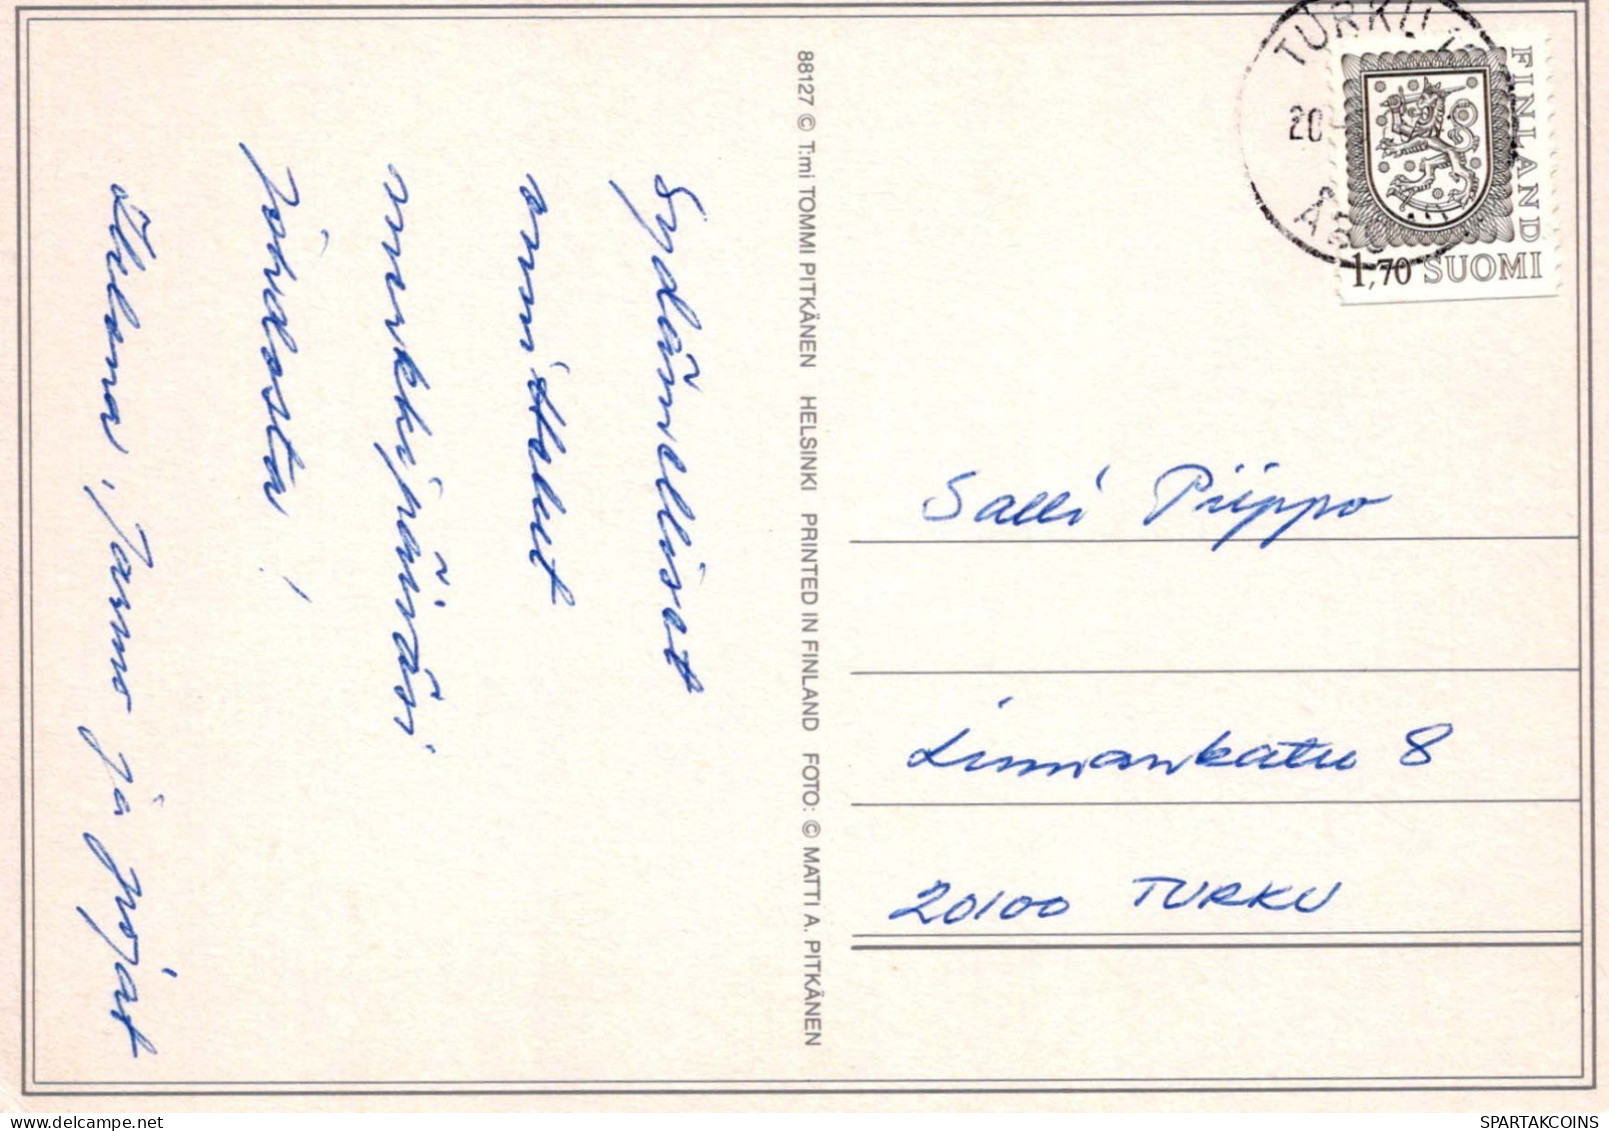 Sydämelliset
onnittelut
merkkipäiväsi
johdosta!
Helena, Jarmo ja pojat
88127 © T:mi TOMMI PITKÄNEN HELSINKI PRINTED IN FINLAND FOTO: © MATTI A. PITKÄNEN
TURKU
20
ÅBO
FINLAND
1,70 SUOMI
Salli Piippo
Linnankatu 8
20100 TURKU
SPARTAKCOINS